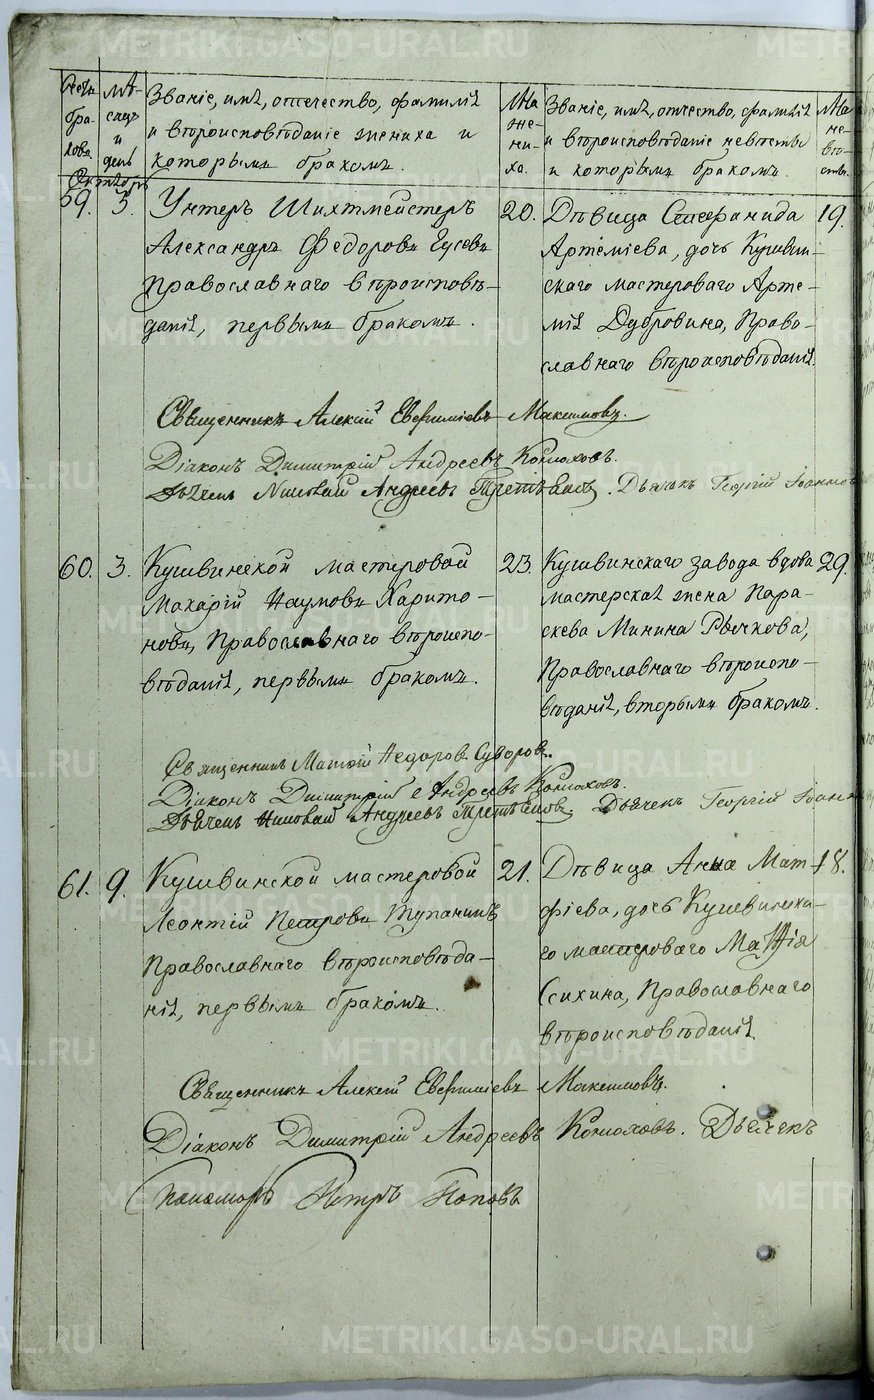 METRIKI.GASO-URAL.RU
Счетъ браковъ.
Мѣсяцъ и день
Званіе, имѧ, отечество, фамиліѧ
и вѣроисповѣданіе жениха и
которымъ бракомъ.
Званіе, имѧ, отчество, фамиліѧ
и вѣроисповѣданіе невѣсты
и которымъ бракомъ
Октѧбрь
59. 3. Унтеръ Шихтмейстеръ
Александръ Федоровъ Гусевъ
Православнаго вѣроисповѣ-
даніѧ, первымъ бракомъ.
20.
Дѣвица Стефанида
Артемієва, дочь Кушвин-
скаго мастероваго Арте-
міѧ Дубровина, Право-
славнаго вѣроисповѣданіѧ.
19.
Священникъ Алексий Евѳиміевъ Максимовъ.
Діаконъ Димитрій Андреевъ Конюховъ.
Дьячекъ Андреевъ Третьяковъ. Дьячекъ Георгій Іоанновъ
60. 3. Кушвинской мастеровой
Макарій Наумовъ Харито-
новъ, Православнаго вѣроиспо-
вѣданіѧ, первымъ бракомъ.
23.
Кушвинскаго завода вдова
мастерскаѧ жена Пара-
скева Минина Рычкова,
Православнаго вѣроиспо-
вѣданіѧ, вторымъ бракомъ.
29.
Священникъ Матѳій Ѳедоров. Суворов..
Діаконъ Димитрій Андреевъ Конюховъ.
Дьячекъ Андреевъ Третьяковъ. Дьячекъ Георгій Іоанн
61. 9. Кушвинской мастеровой
Леонтій Петровъ Тупанинъ
Православнаго вѣроисповѣда-
ніѧ, первымъ бракомъ.
21.
Дѣвица Анна Мат-
фіева, дочь Кушвинска-
го мастероваго Матѳія
Сихина, Православнаго
вѣроисповѣданіѧ
18.
Священникъ Алексій Евѳиміевъ Максимовъ.
Діаконъ Димитрій Андреевъ Конюховъ. Дьячекъ
Пономарь Петръ Поповъ